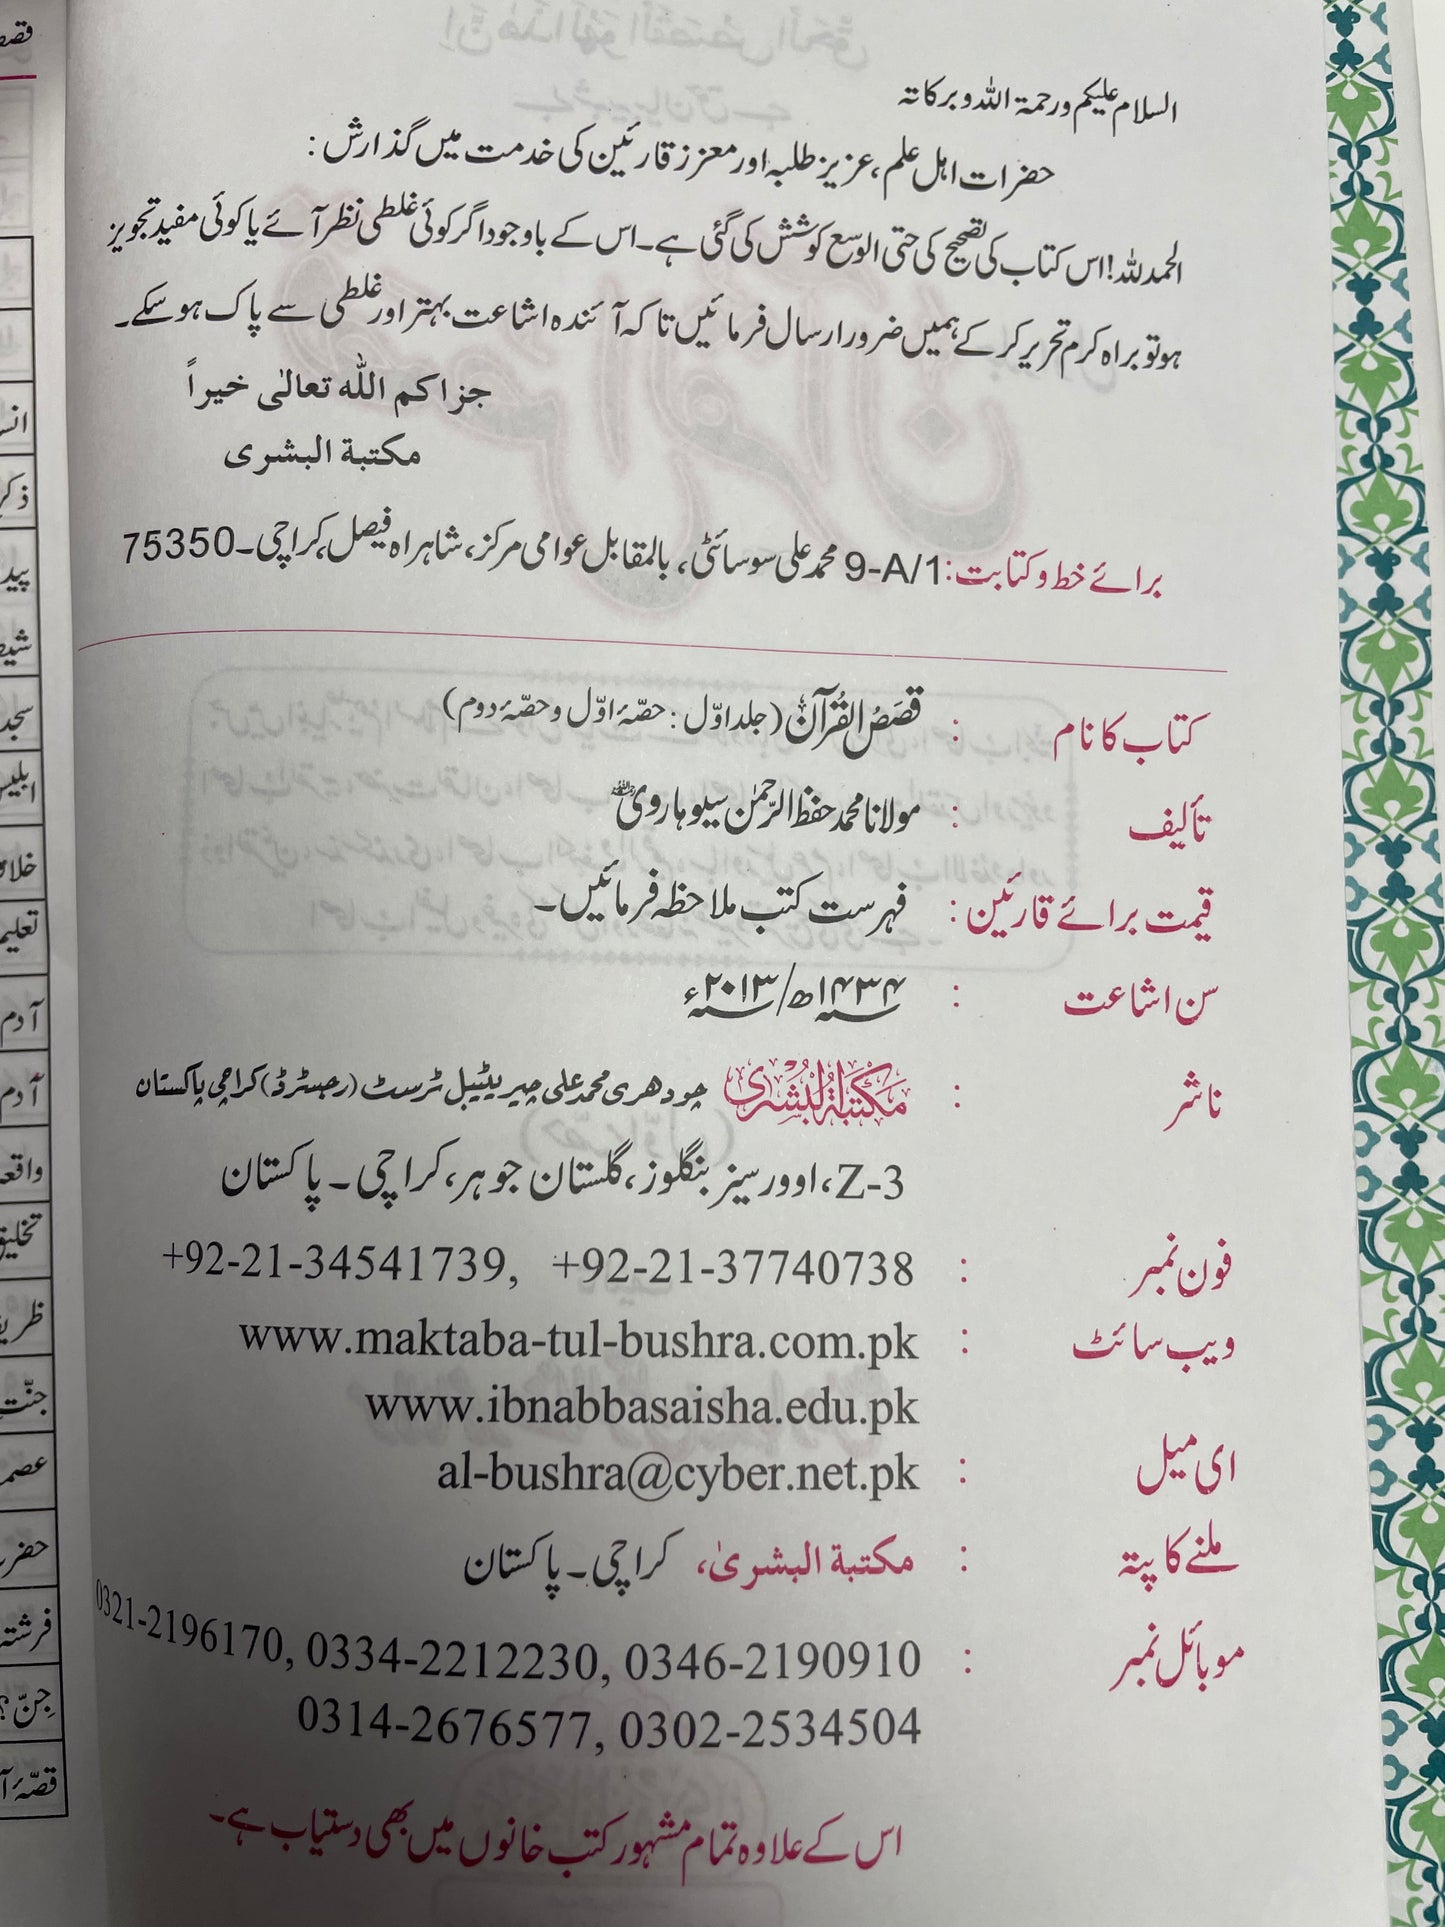 السلام علیکم ورحمۃ اللہ وبرکاتہ
حضرات اہل علم، عزیز طلبہ اور معزز قارئین کی خدمت میں گذارش:
الحمد للہ! اس کتاب کی تصحیح کی حتی الوسع کوشش کی گئی ہے۔ اس کے باوجود اگر کوئی غلطی نظر آئے یا کوئی مفید تجویز
ہو تو براہ کرم تحریر کر کے ہمیں ضرور ارسال فرمائیں تاکہ آئندہ اشاعت بہتر اور غلطی سے پاک ہو سکے۔
جزاکم اللہ تعالیٰ خیراً
مكتبة البشری
برائے خط وکتابت: 9-A/1 محمد علی سوسائٹی، بالمقابل عوامی مرکز، شاہراہ فیصل، کراچی۔ 75350
کتاب کا نام : قَصَصُ القُرآن (جلد اوّل : حصّۂ اوّل و حصّۂ دوم)
تألیف : مولانا محمد حفظ الرّحمٰن سیوہاروی رحمہ اللہ
قیمت برائے قارئین : فہرست کتب ملاحظہ فرمائیں۔
سن اشاعت : ۱۴۳۴ھ/ ۲۰۱۳ء
ناشر : مَكتَبَةُ البُشرى چودھری محمد علی چیریٹیبل ٹرسٹ (رجسٹرڈ) کراچی پاکستان
Z-3، اوورسیز بنگلوز، گلستان جوہر، کراچی۔ پاکستان
فون نمبر : +92-21-34541739, +92-21-37740738
ویب سائٹ : www.maktaba-tul-bushra.com.pk
www.ibnabbasaisha.edu.pk
ای میل : al-bushra@cyber.net.pk
ملنے کا پتہ : مكتبة البشریٰ، کراچی۔ پاکستان
موبائل نمبر : 0321-2196170, 0334-2212230, 0346-2190910
0314-2676577, 0302-2534504
اس کے علاوہ تمام مشہور کتب خانوں میں بھی دستیاب ہے۔